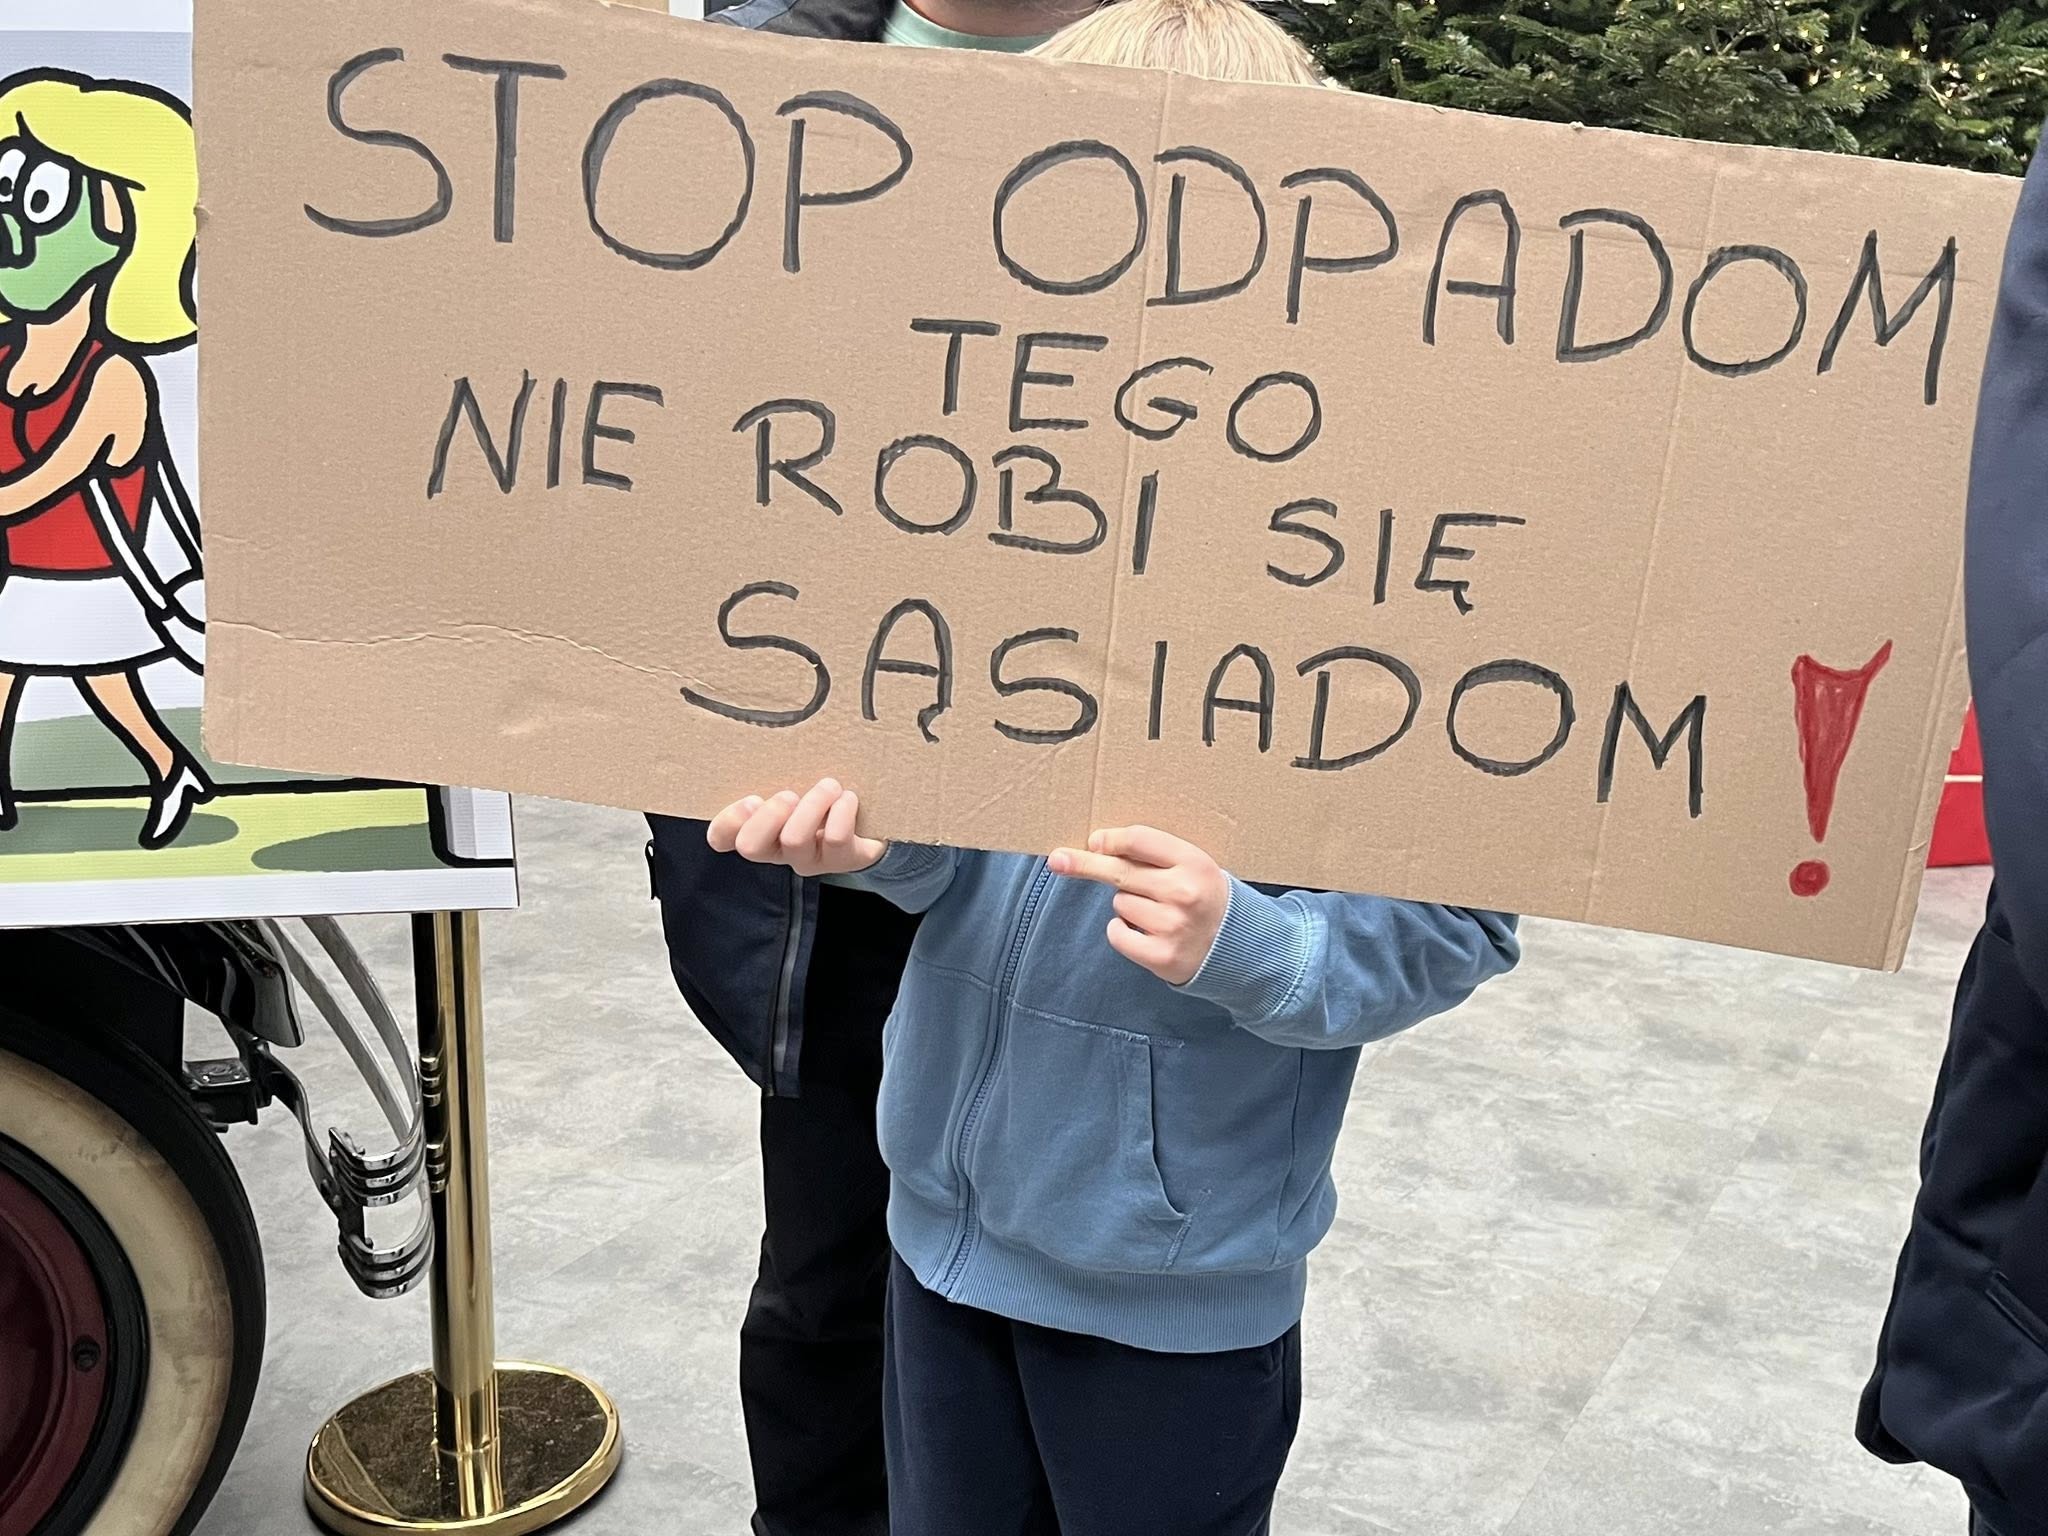 STOP ODPADOM
TEGO
NIE ROBI SIĘ
SĄSIADOM!